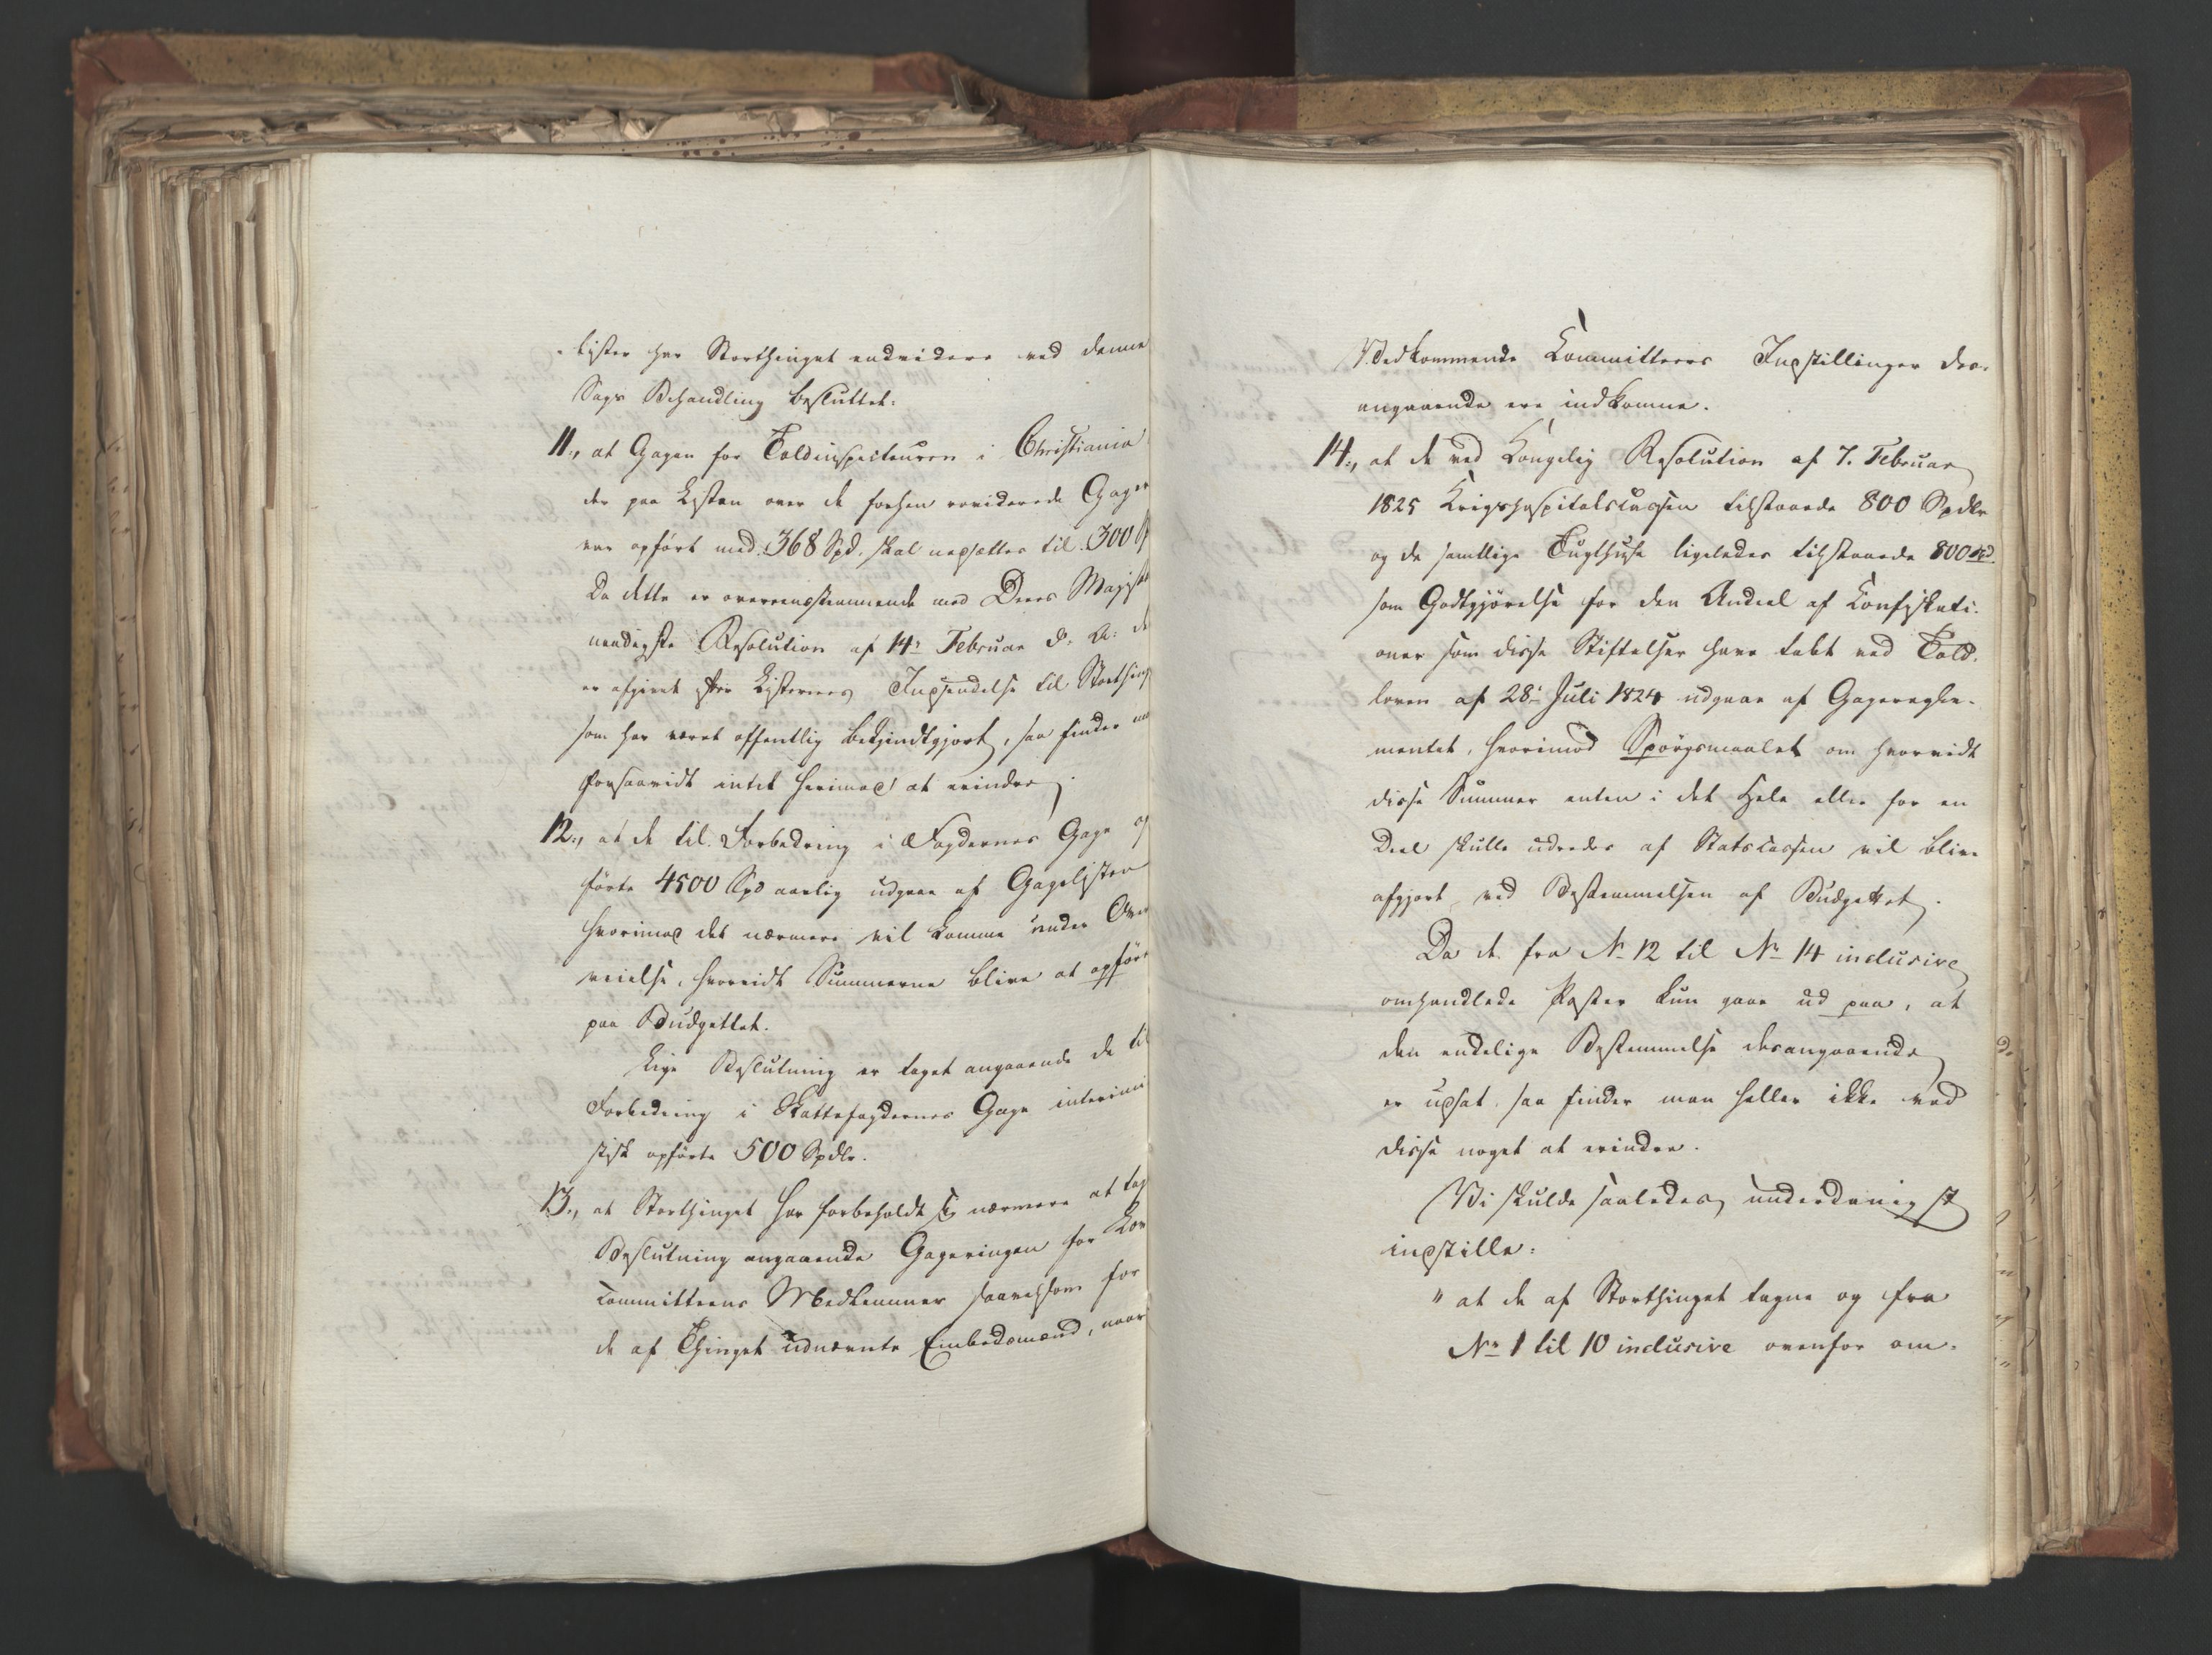 lister har Storthinget endvidere ved denne
Sags Behandling besluttet:
11., at Gagen for Toldinspecteuren i Christiania
der paa Listen over de forhen reviderede Gager
var opført med 368 Spd. skal nedsættes til 300
Da dette er overeensstemmende med Deres Majest
naadigste Resolution af 14de Februar d. A. de
er afgivet efter Listernes Indsendelse til Storthing
som har været offentlig bekjendtgjort, saa finder
forsaavidt intet herimod at erindre.
12., at de til Forbedring i Fogdernes Gage op
førte 4500 Spd aarlig udgaae af Gagelisten
hvorimod det nærmere vil komme under Over
veielse, hvorvidt Summerne blive at opføre
paa Budgettet.
Lige Beslutning er taget angaaende de til
Forbedring i Skattefogdernes Gage interimi
stisk opførte 500 Spdlr.
13., at Storthinget har forbeholdt sig nærmere at tag
Beslutning angaaende Gageringen for
Committeens Medlemmer saavelsom for
de af Thinget udnævnte Embedsmænd, naar
Vedkommende Committeers Indstillinger der-
angaaende ere indkomne.
14., at de ved Kongelig Resolution af 7. Februar
1825 Krigshospitalscassen tilstaaede 800 Spdlr
og de samtlige Tugthuse ligeledes tilstaaede 800 Spd.
som Godtgjørelse for den Andeel af Confiskati-
oner som disse Stiftelser have tabt ved Told-
loven af 28de Juli 1824 udgaae af Gageregle-
mentet, hvorimod Spørgsmaalet om hvorvidt
disse Summer enten i det Hele eller for en
Deel skulle udredes af Statscassen vil blive
afgjort ved Bestemmelsen af Budgettet.
Da de fra No 12 til No 14 inclusive
omhandlede Poster kun gaae ud paa, at
den endelige Bestemmelse desangaaende
er udsat saa finder man heller ikke ved
disse noget at erindre.
Vi skulde saaledes underdanigst
indstille:
" at de af Storthinget tagne og fra
No 1 til 10 inclusive ovenfor om-